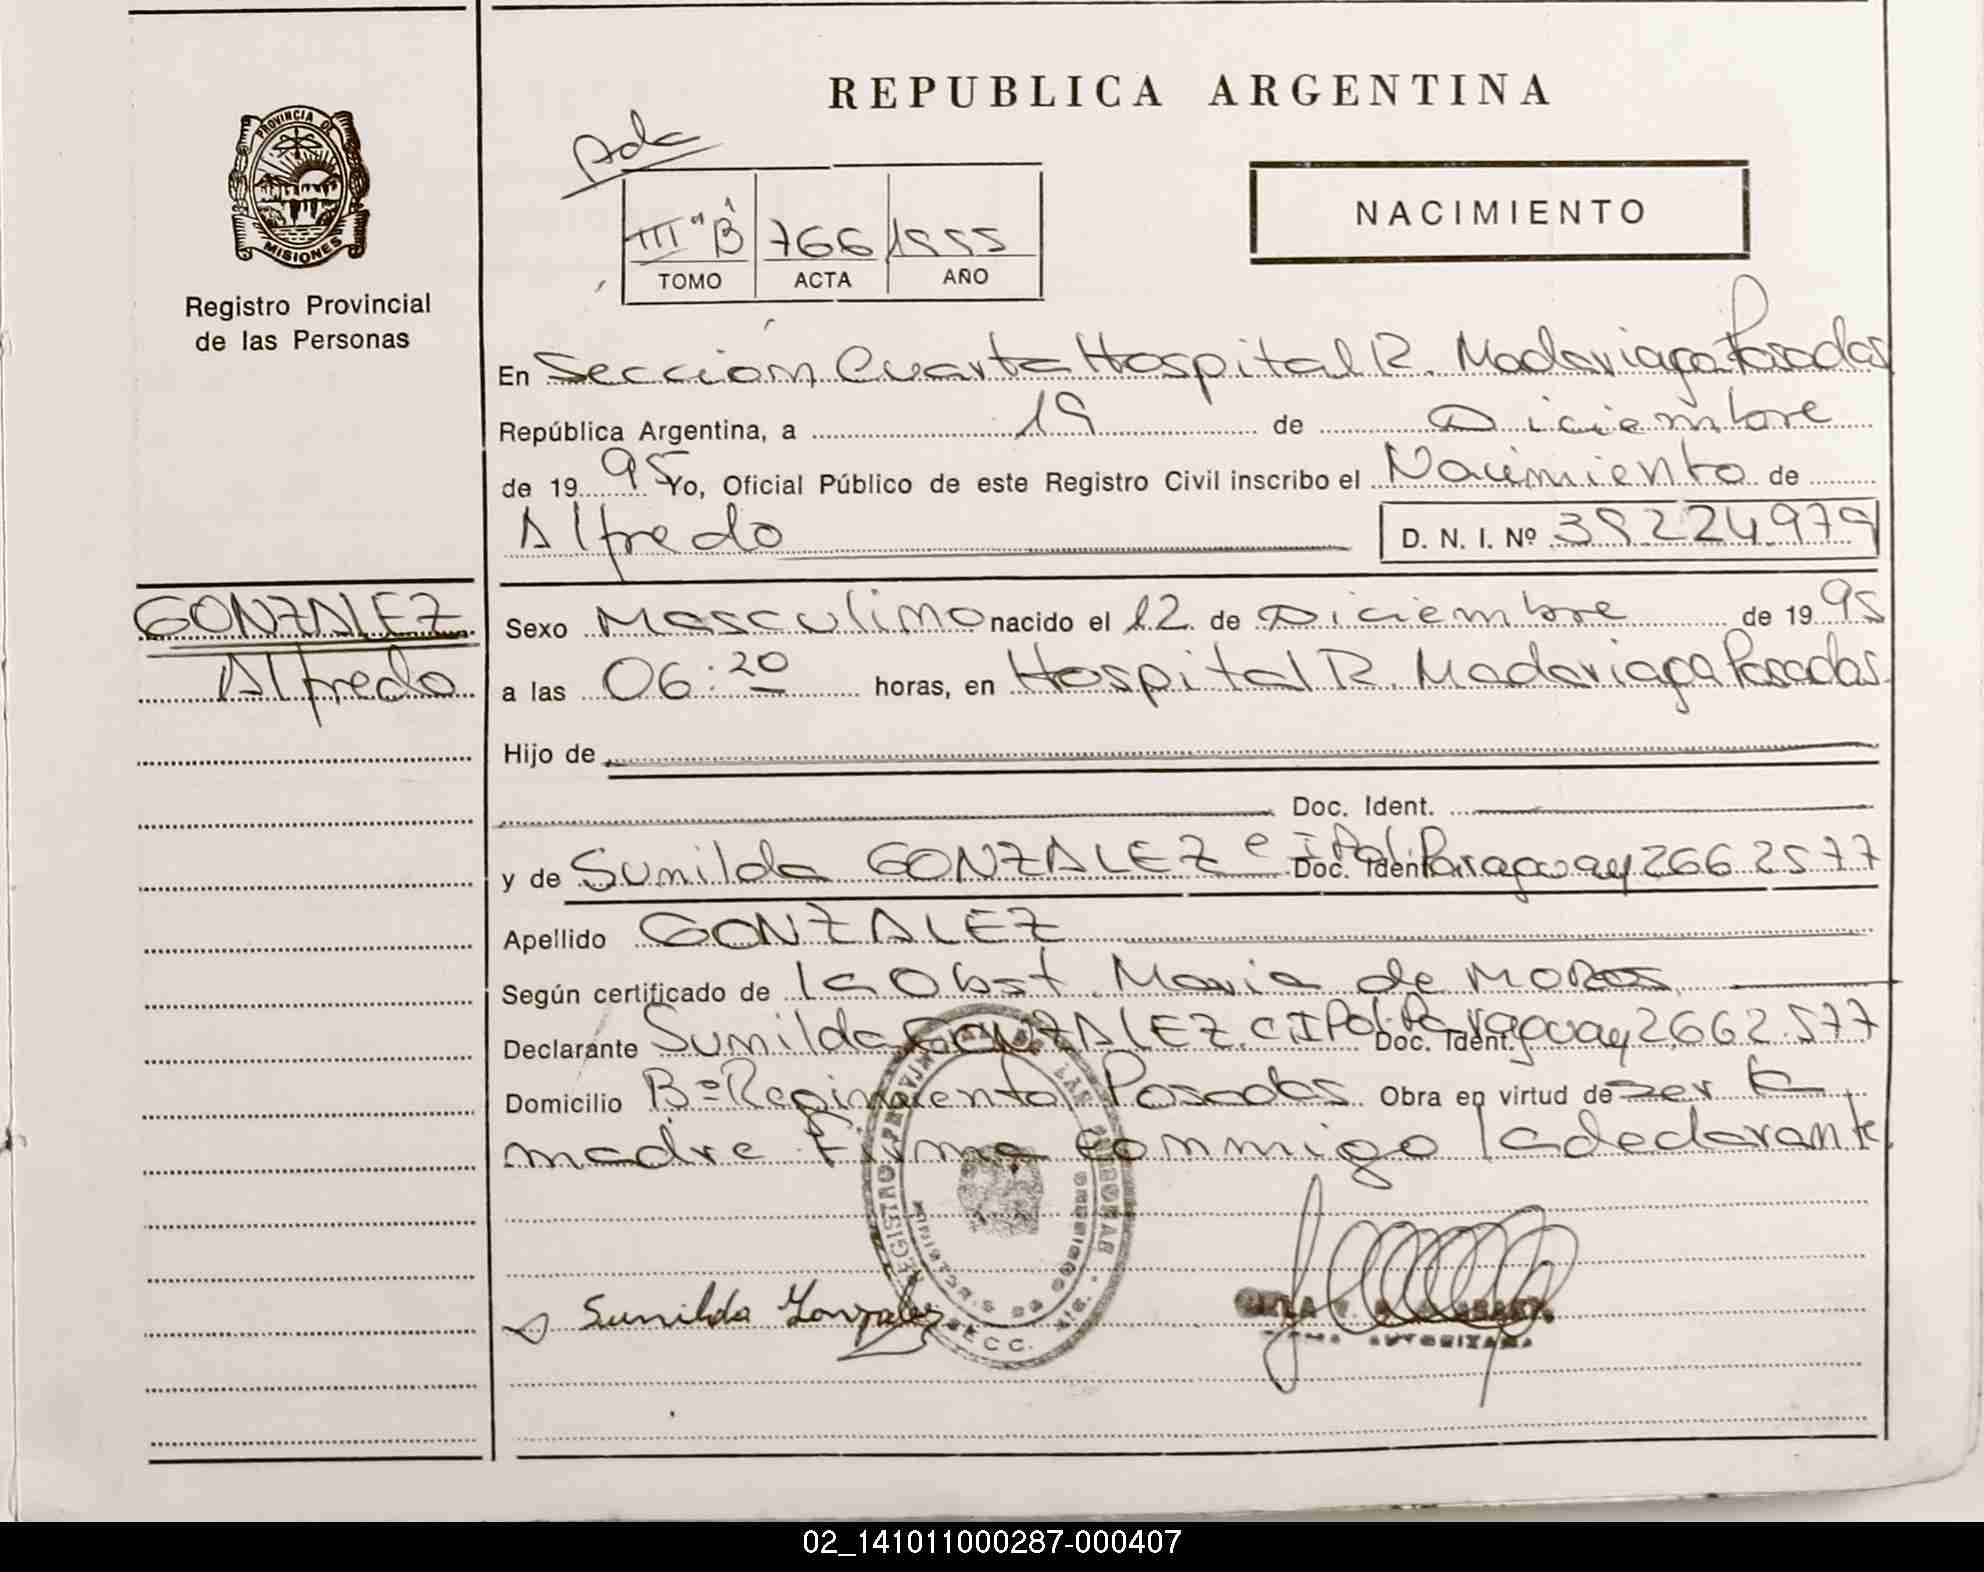 REPUBLICA ARGENTINA
PROVINCIA DE
MISIONES
Registro Provincial
de las Personas
Ada
III "B" 766 1995
TOMO ACTA AÑO
NACIMIENTO
En Sección Cuarta Hospital R. Madariaga Posadas
República Argentina, a 19 de Diciembre
de 19 95 Yo, Oficial Público de este Registro Civil inscribo el Nacimiento de
Alfredo D. N. I. Nº 39224979
GONZALEZ
Alfredo
Sexo Masculino nacido el 12 de Diciembre de 19 95
a las 06:20 horas, en Hospital R. Madariaga Posadas.
Hijo de
Doc. Ident.
y de Sunilda GONZALEZ CIPol. Doc. Ident. Paraguay 2662577
Apellido GONZALEZ
Según certificado de la Obst. Maria de MOROS
Declarante Sunilda GONZALEZ. CIPol. Paraguay Doc. Ident. 2662.577
Domicilio Bº Regimiento Posadas Obra en virtud de ser la
madre Firma conmigo la declarante.
Sunilda Gonzalez
REGISTRO PROVINCIAL DE LAS PERSONAS
SECC.
FIRMA AUTORIZADA
02_141011000287-000407